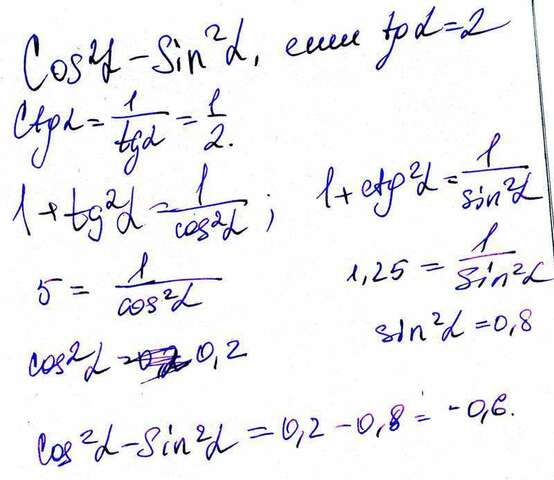 Cos²α - Sin²α, если tgα = 2
Ctgα = 1/tgα = 1/2.
1 + tg²α = 1/cos²α ; 1 + ctg²α = 1/sin²α
5 = 1/cos²α 1,25 = 1/sin²α
cos²α = 0,2 sin²α = 0,8
Cos²α - Sin²α = 0,2 - 0,8 = -0,6.